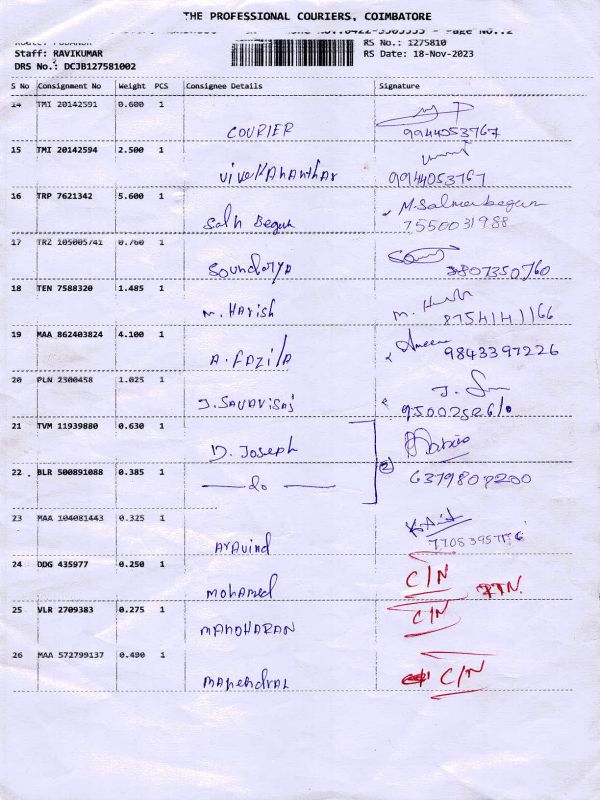 THE PROFESSIONAL COURIERS, COIMBATORE
Page No.:2
Staff: RAVIKUMAR
RS No.: 1275810
DRS No.: DCJB127581002
RS Date: 18-Nov-2023
S No Consignment No Weight PCS Consignee Details Signature
14 TMI 20142591 0.600 1
COURIER 9944053767
15 TMI 20142594 2.500 1
VIVEKAHANthAr 9944053767
16 TRP 7621342 5.600 1 M.Salmabegum
Salh Begum 7550031988
17 TRZ 105005741 0.760 1
Soundarya 8807350760
18 TEN 7588320 1.485 1
M. Harish 8754141166
19 MAA 862403824 4.100 1
A. FAZILA 9843397226
20 PLN 2300458 1.025 1
J.
21 TVM 11939880 0.630 1
D. Joseph
22 BLR 500891088 0.385 1
do (2) 6379807200
23 MAA 104081443 0.325 1
Aravind
24 ODG 435977 0.250 1 C/N
Mohamed RTN.
25 VLR 2709383 0.275 1 C/N
MANOHARAN
26 MAA 572799137 0.490 1
C/N